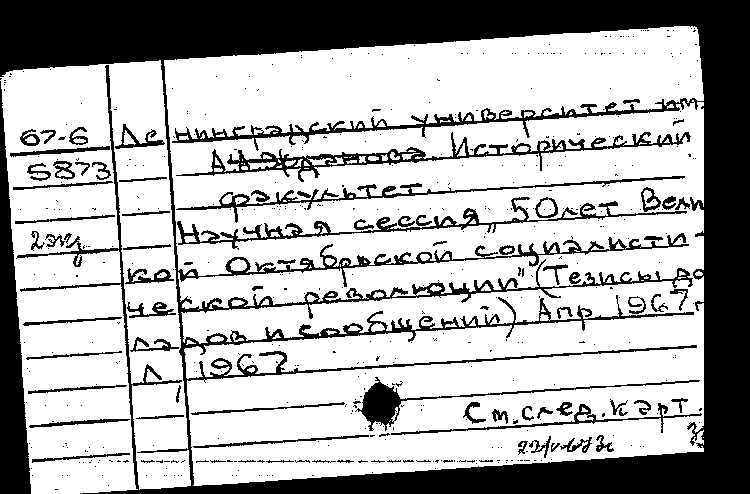 67-6 Ленинградский университет им.
5873 А.А.Жданова. Исторический
факультет.
2 экз Научная сессия „50 лет Вели
кой Октябрьской социалисти-
ческой революции" (Тезисы до
ладов и сообщений). Апр 1967 г
Л, 1967.
См. след. карт.